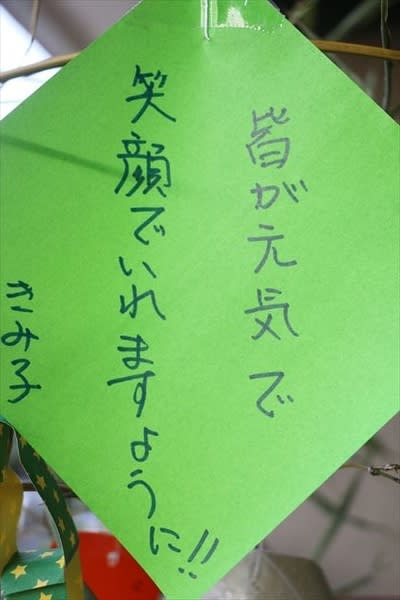 皆が元気で
笑顔でいれますように!!
きみ子